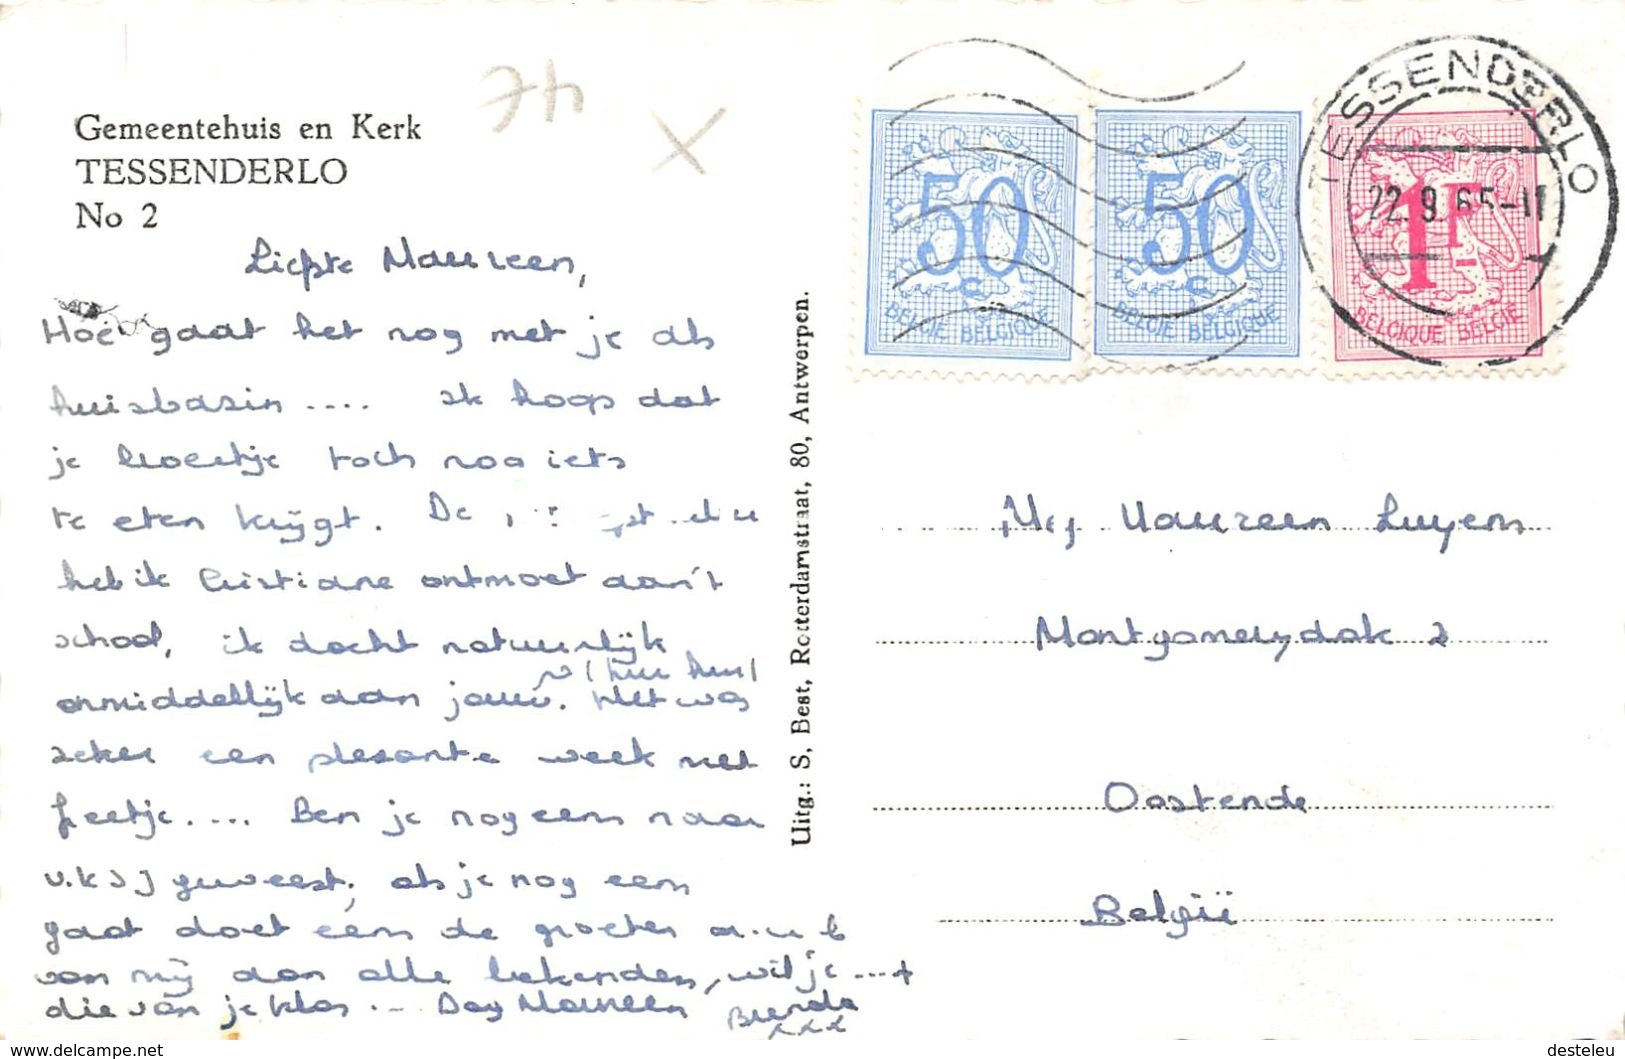 74
X
Gemeentehuis en Kerk
TESSENDERLO
No 2
Liefste Maureen,
Hoe gaat het nog met je als
huisbazin .... ik hoop dat
je broertje toch nog iets
te eten krijgt. De
heb ik Cristiane ontmoet aan't
school, ik dacht natuurlijk
onmiddellijk aan jouw. Het was
zeker een plesante week met
feetje.... Ben je nog eens naar
V.K.S.J geweest, als je nog eens
gaat doet eens de groeten a.u.b
van mij aan alle bekenden, wil je ... +
die van je klas ... Dag Maureen Brenda
xxx
Uitg.: S. Best, Rotterdamstraat, 80, Antwerpen.
50 c
BELGIE BELGIQUE
50 c
BELGIE BELGIQUE
1F
BELGIQUE BELGIE
TESSENDERLO
22.9.65-11
Mej Maureen Luyens
Montgomerydok 2
Oostende
België
www.delcampe.net
desteleu